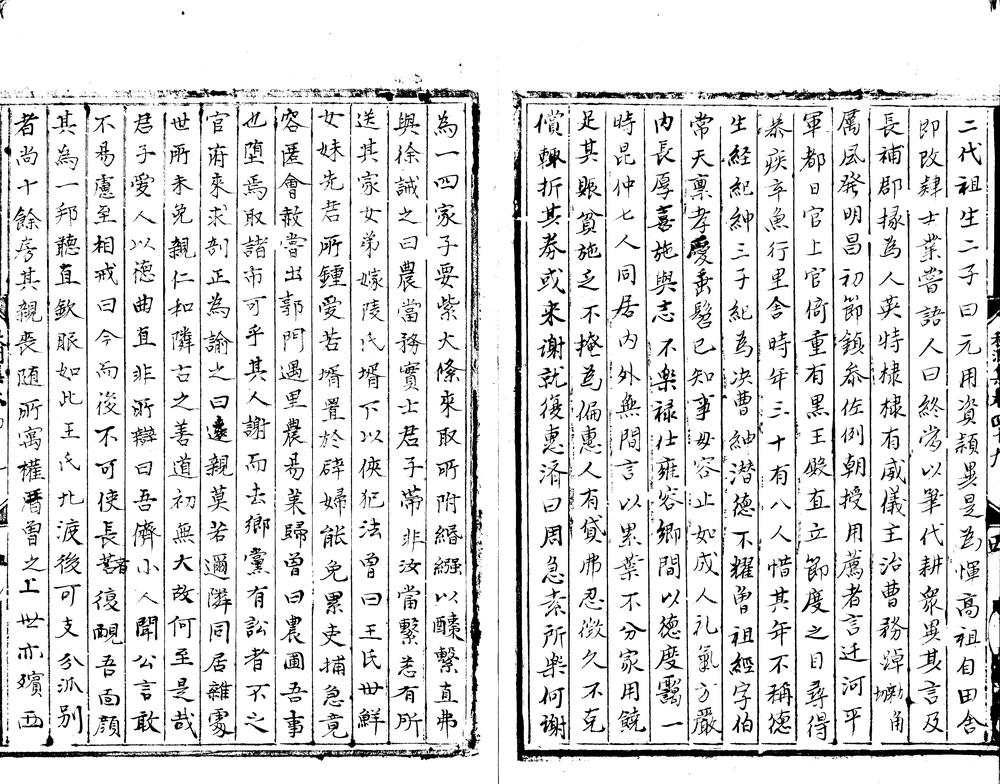 二代祖生二子曰元用資穎異是為惲高祖自田舍
即改肄士業嘗語人曰終當以筆代耕衆異其言及
長補郡掾為人英特棣棣有威儀主治曹務淖㘓角
厲風發明昌初節鎮叅佐例朝授用薦者言迁河平
軍都目官上官倚重有黒王殿直立節度之目尋得
恭疾卒魚行里舍時年三十有八人惜其年不稱德
生經紀紳三子紀為决曹紳潜德不耀曾祖經字伯
常天禀孝愛垂髫已知事母容止如成人礼氣方嚴
内長厚喜施與志不樂禄仕雍容鄉間以德度靄一
時昆仲七人同居内外無間言以累葉不分家用饒
足其賑貧施乏不掩為偏惠人有貸弗忍徴久不克
償輙折其劵或来谢就復惠済曰周急素所樂何谢
為一四家子耍紫大絛来取所附緡繦以醵繫直弗
與徐誠之曰農當務實士君子帶非汝當繫恚有所
送其家女弟嫁陵氏壻下以俠犯法曾曰王氏世鮮
女妹先君所鍾愛若壻置於辟婦能免累吏捕急竟
容匿會赦嘗出郭門遇里農昜菓歸曾曰農圃吾事
也堕焉取諸市可乎其人謝而去鄉黨有訟者不之
官府來求剖正為諭之曰遠親莫若邇隣同居雜處
世所未免親仁和隣古之善道初無大故何至是哉
君子愛人以德曲直非所辯曰吾儕小人聞公言敢
不易慮至相戒曰今而後不可使長者復靦吾面顔
其為一邦聽直欽服如此王氏九渡後可支分派别
者尚十餘房其親喪随所寓權厝曾之上世亦殯西